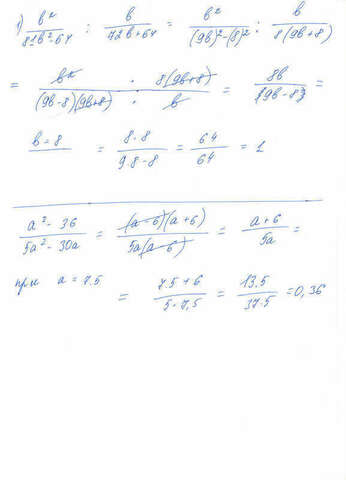 1) b² / (81b²-64) : b / (72b+64) = b² / ((9b)²-(8)²) : b / (8(9b+8))
= b² / ((9b-8)(9b+8)) · 8(9b+8) / b = 8b / (9b-8) =
b=8 = 8·8 / (9·8-8) = 64 / 64 = 1
(a²-36) / (5a²-30a) = (a-6)(a+6) / (5a(a-6)) = (a+6) / 5a =
при a=7.5 = (7.5+6) / (5·7,5) = 13.5 / 37.5 = 0,36